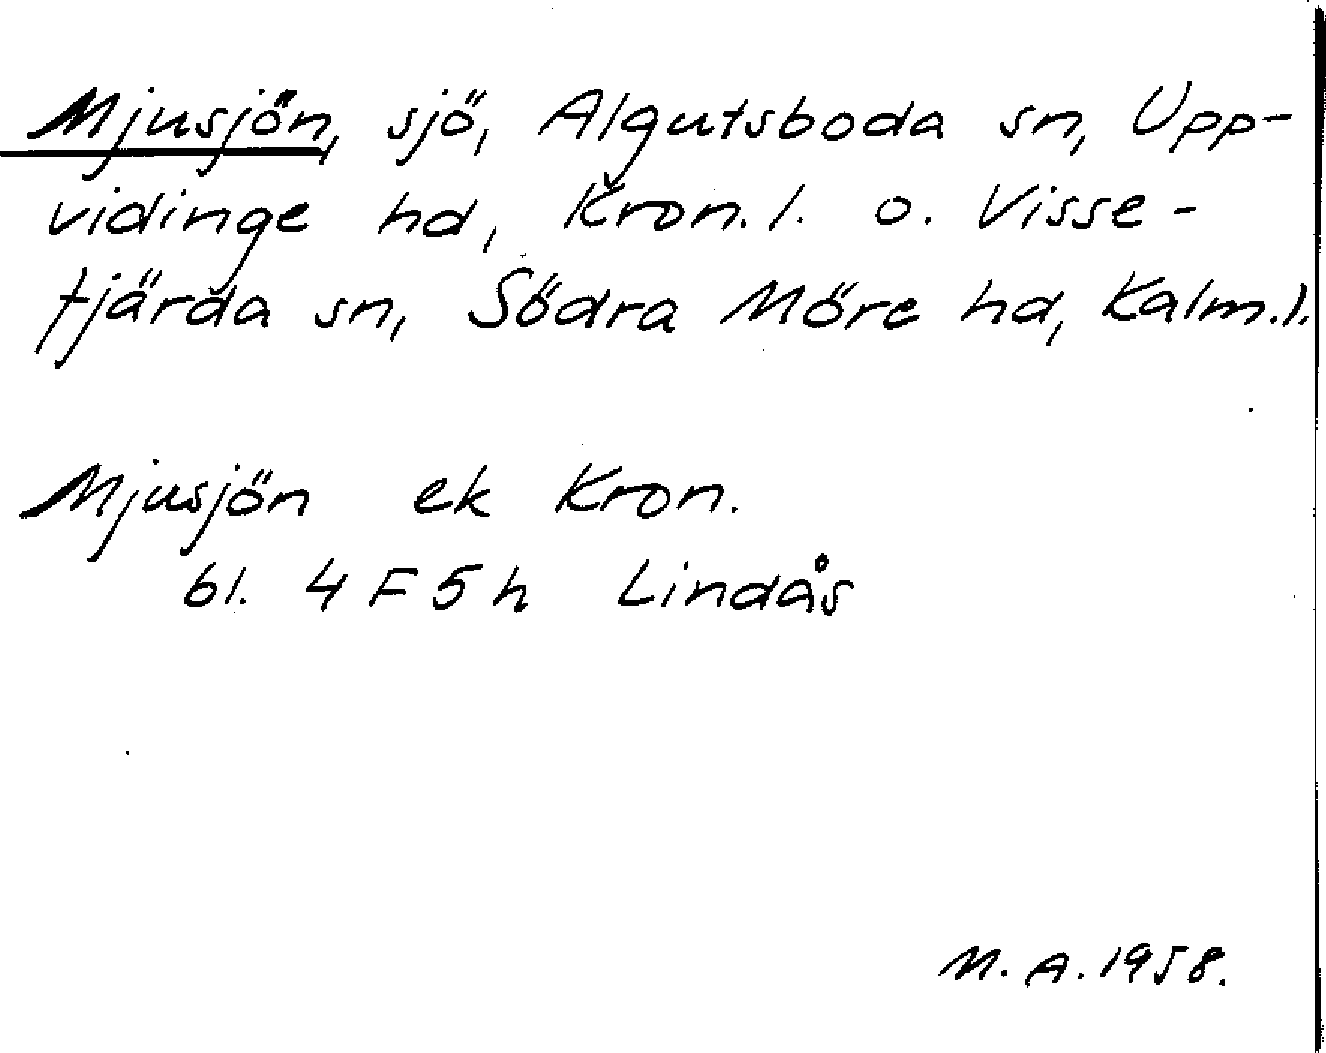 Mjusjön, sjö, Algutsboda sn, Upp-
vidinge hd, Kron.l. o. Visse-
fjärda sn, Södra Möre hd, Kalm.l.
Mjusjön ek Kron.
bl. 4 F 5 h Lindås
M. A. 1958.